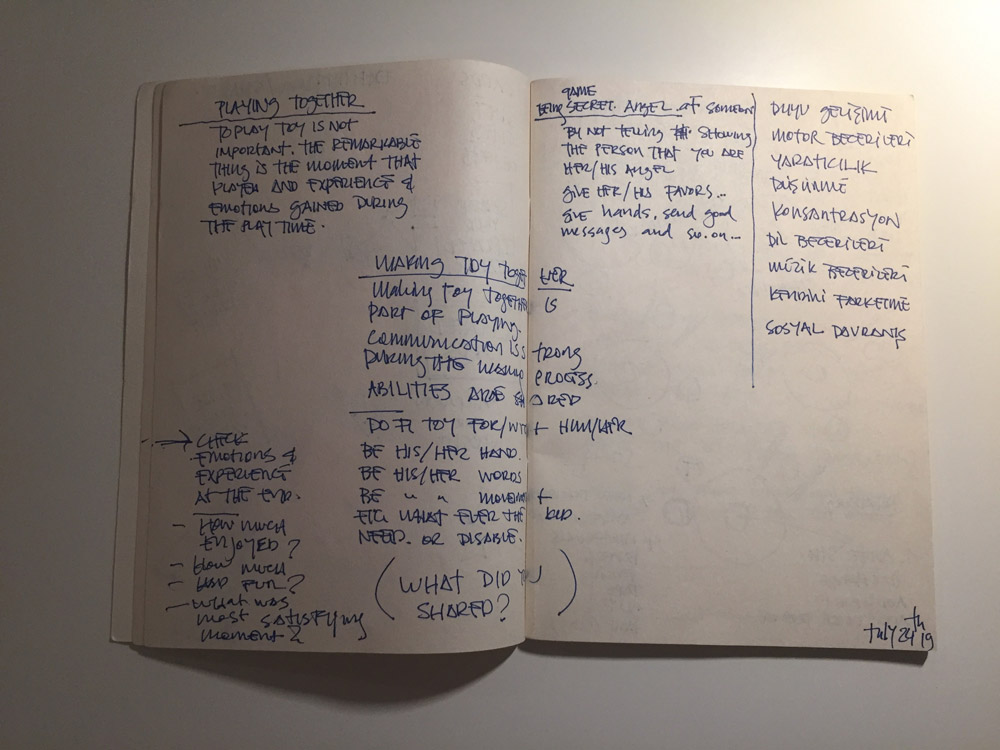 PLAYING TOGETHER
TO PLAY TOY IS NOT
IMPORTANT. THE REMARKABLE
THING IS THE MOMENT THAT
PLAYED AND EXPERIENCE &
EMOTIONS GAINED DURING
THE PLAY TIME.
MAKING TOY TOGETHER
Making TOY TOGETHER IS
PART OF PLAYING.
Communication is strong
DURING THE MAKING PROCESS.
ABILITIES ARE SHARED
DO A TOY FOR/WITH HIM/HER
BE HIS/HER HAND.
BE HIS/HER WORDS
BE " " movement
ETC. WHAT EVER THE KID.
NEED. OR DISABLE.
(WHAT DID YOU
SHARED?)
→ CHECK
EMOTIONS &
EXPERIENCE
AT THE END.
- HOW MUCH
ENJOYED?
- HOW MUCH
- HAD FUN?
- WHAT WAS
most satisfying
moment?
GAME
BEING SECRET. ANGEL of someone
BY NOT TELLING SHOWING
THE PERSON THAT YOU ARE
HER/HIS ANGEL
GIVE HER/HIS FAVORS...
GIVE hands, send good
messages and so.on...
DUYU GELİŞİMİ
MOTOR BECERİLERİ
YARATICILIK
DÜŞÜNME
KONSANTRASYON
DİL BECERİLERİ
MÜZİK BECERİLERİ
KENDİNİ FARKETME
SOSYAL DAVRANIŞ
July 24th '19